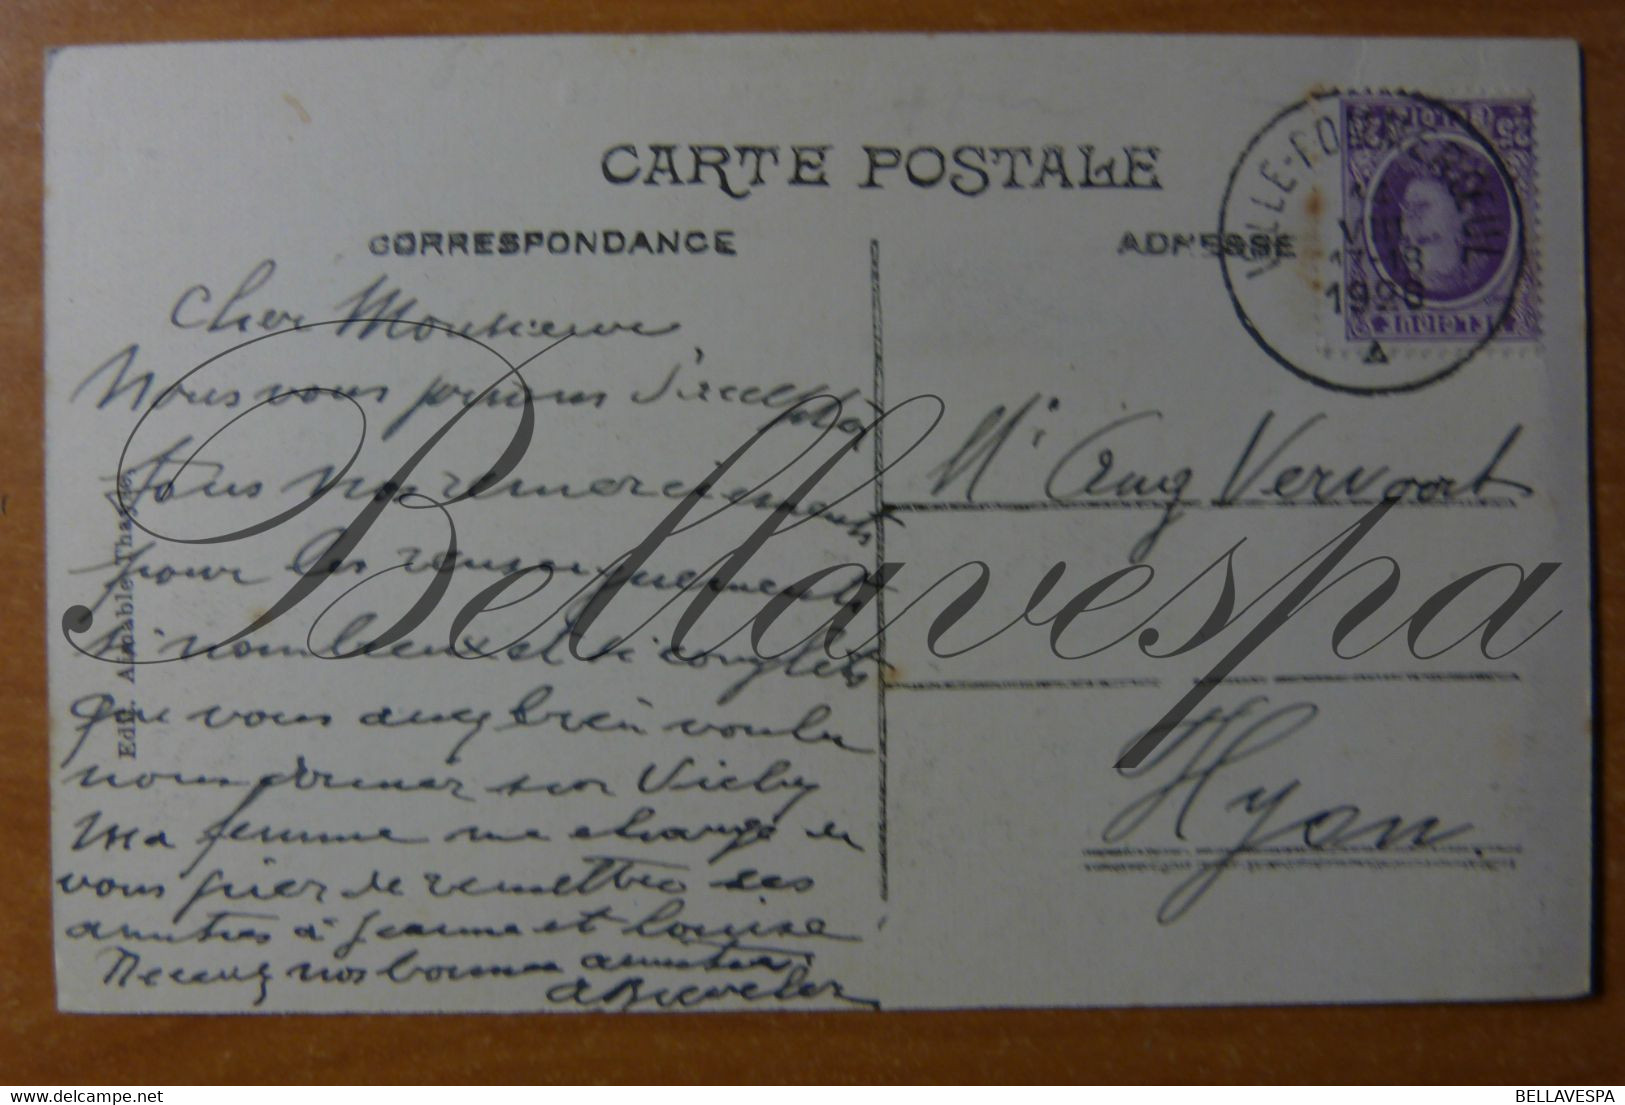 CARTE POSTALE
CORRESPONDANCE
ADRESSE
VILLE-POMMEROEUL
VIII
17-18
1926
Cher Monsieur,
Nous vous prions d'accepter
tous nos remerciements
pour les renseignements
si nombreux et si complets
que vous avez bien voulu
nous donner sur Vichy
Ma femme me charge de
vous prier de remettre ses
amitiés à Jeanne et Louise
Recevez nos bonnes amitiés.
Mr Aug Vervoort
Hyon.
Edit. Aimable Thays.
Bellavespa
BELLAVESPA